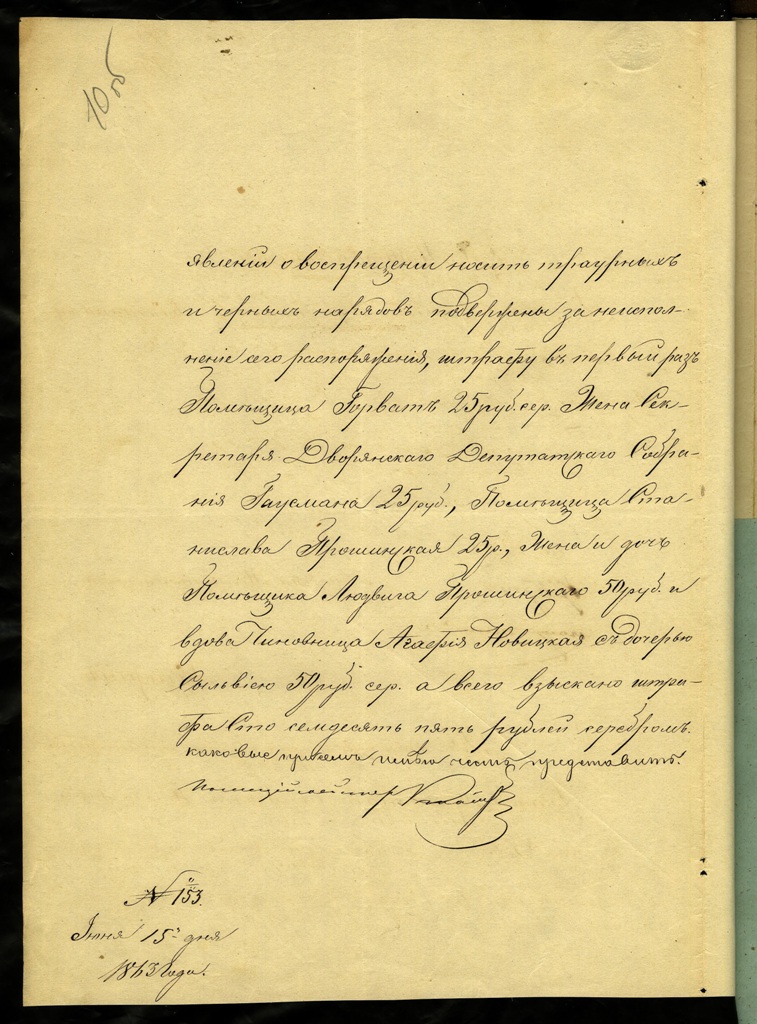 10 об
явленiи о воспрещенiи носить траурныхъ
и черныхъ нарядовъ подвержены за неиспол-
ненiе сего распоряженiя, штрафу въ первый разъ
Помѣщица Горватъ 25 руб. сер. Жена Сек-
ретаря Дворянскаго Депутатскаго Собра-
нiя Гаусмана 25 руб., Помѣщица Ста-
нислава Прошинская 25 р., Жена и дочь
Помѣщика Людвига Прошинскаго 50 руб. и
вдова Чиновница Агафiя Новицкая съ дочерью
Сильвiею 50 руб. сер. а всего взыскано штра-
фа Сто семдесять пять рублей серебромъ.
каковые при семъ имѣю честь представить.
Полицiймейстеръ
№ 153.
Iюня 15 дня
1863 года.